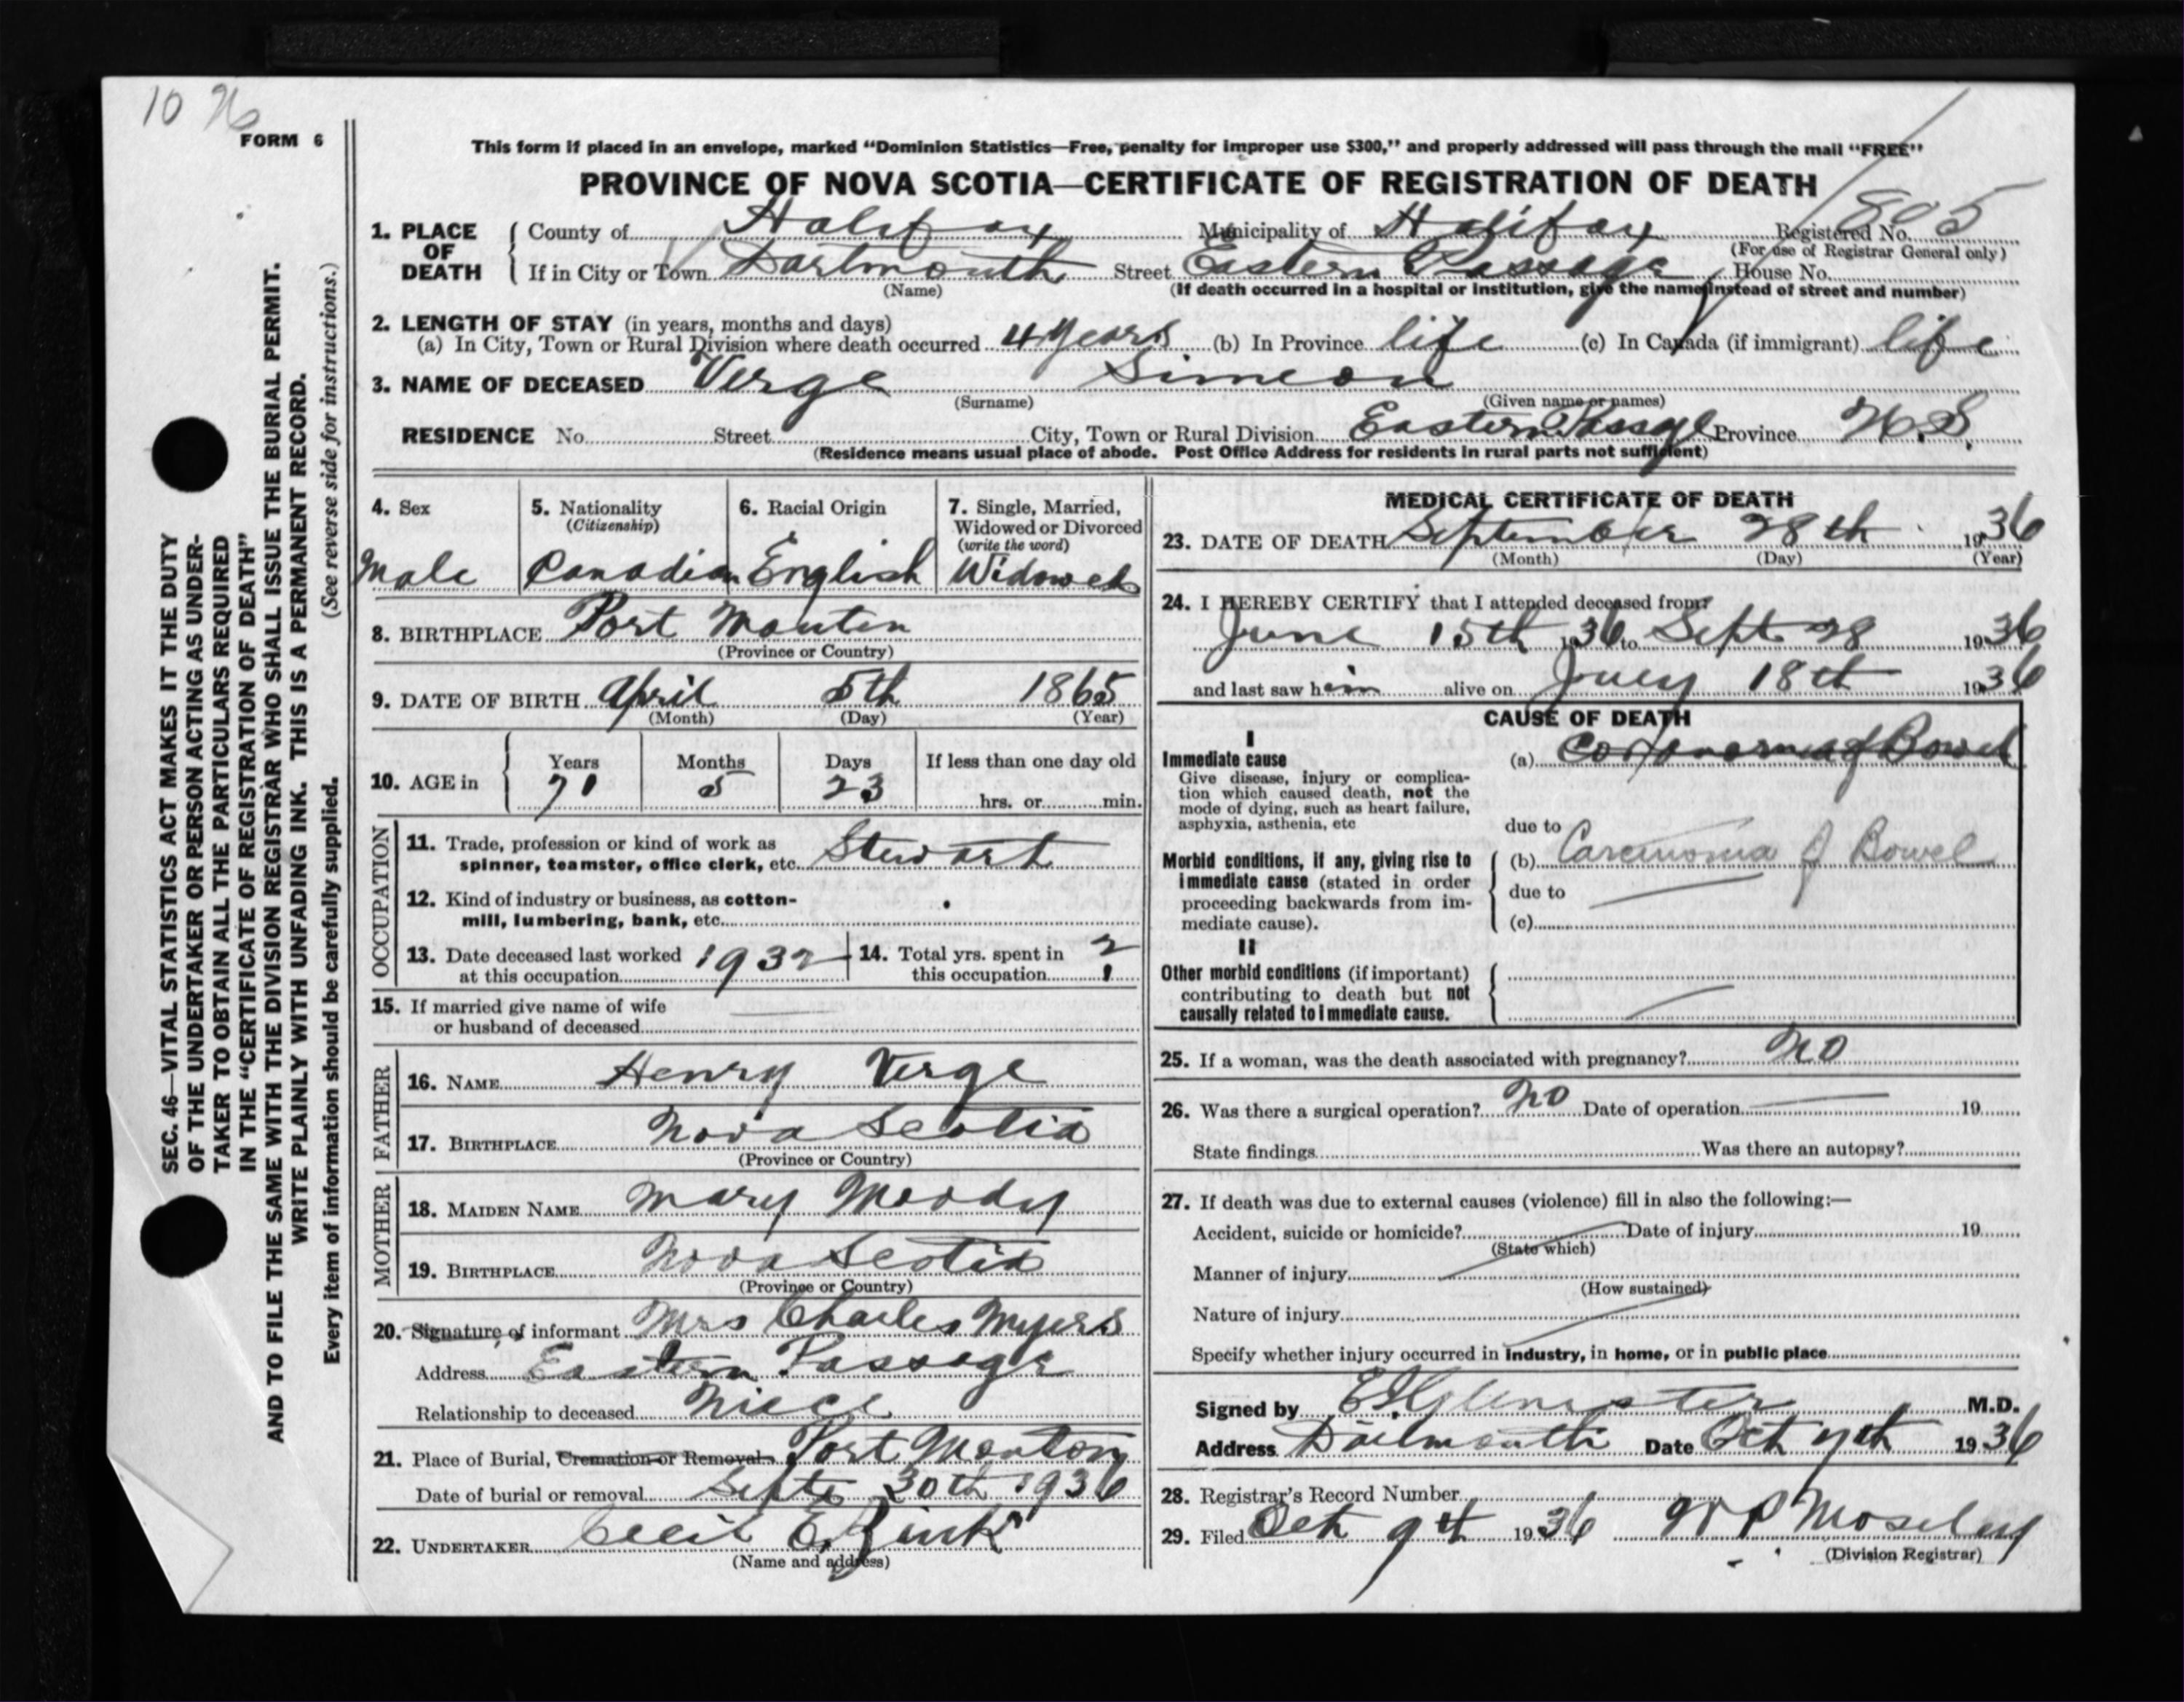 10
FORM 6
This form if placed in an envelope, marked “Dominion Statistics—Free, penalty for improper use $300,” and properly addressed will pass through the mail “FREE”
PROVINCE OF NOVA SCOTIA—CERTIFICATE OF REGISTRATION OF DEATH
805
1. PLACE OF DEATH County of Halifax Municipality of Halifax Registered No.
(For use of Registrar General only)
If in City or Town Dartmouth Street Eastern Passage House No.
(Name) (If death occurred in a hospital or institution, give the name instead of street and number)
2. LENGTH OF STAY (in years, months and days)
(a) In City, Town or Rural Division where death occurred 4 years (b) In Province life (c) In Canada (if immigrant) life
3. NAME OF DECEASED Verge Simeon
(Surname) (Given name or names)
RESIDENCE No. Street City, Town or Rural Division Eastern Passage Province N.S.
(Residence means usual place of abode. Post Office Address for residents in rural parts not sufficient)
4. Sex 5. Nationality 6. Racial Origin 7. Single, Married,
(Citizenship) Widowed or Divorced
(write the word)
Male Canadian English Widowed
8. BIRTHPLACE Port Mouton
(Province or Country)
9. DATE OF BIRTH April 5th 1865
(Month) (Day) (Year)
Years Months Days If less than one day old
10. AGE in 71 5 23 hrs. or min.
OCCUPATION
11. Trade, profession or kind of work as
spinner, teamster, office clerk, etc. Stewart
12. Kind of industry or business, as cotton-
mill, lumbering, bank, etc.
13. Date deceased last worked 1932 14. Total yrs. spent in ?
at this occupation this occupation
15. If married give name of wife
or husband of deceased
FATHER
16. NAME Henry Verge
17. BIRTHPLACE Nova Scotia
(Province or Country)
MOTHER
18. MAIDEN NAME Mary Moody
19. BIRTHPLACE Nova Scotia
(Province or Country)
20. Signature of informant Mrs Charles Myers
Address Eastern Passage
Relationship to deceased Niece
21. Place of Burial, Cremation or Removal Port Mouton
Date of burial or removal Sept 30th 1936
22. UNDERTAKER Cecil E. Zink
(Name and address)
MEDICAL CERTIFICATE OF DEATH
23. DATE OF DEATH September 28th 1936
(Month) (Day) (Year)
24. I HEREBY CERTIFY that I attended deceased from:
June 15th 1936 to Sept 28 1936
and last saw him alive on July 18th 1936
CAUSE OF DEATH
I
Immediate cause (a) of Bowel
Give disease, injury or complica-
tion which caused death, not the
mode of dying, such as heart failure,
asphyxia, asthenia, etc
due to
Morbid conditions, if any, giving rise to (b) Carcinoma of Bowel
immediate cause (stated in order due to
proceeding backwards from im-
mediate cause). (c)
II
Other morbid conditions (if important)
contributing to death but not
causally related to immediate cause.
25. If a woman, was the death associated with pregnancy? No
26. Was there a surgical operation? No Date of operation 19
State findings Was there an autopsy?
27. If death was due to external causes (violence) fill in also the following:—
Accident, suicide or homicide? Date of injury 19
(State which)
Manner of injury
(How sustained)
Nature of injury
Specify whether injury occurred in industry, in home, or in public place
Signed by M.D.
Address Dartmouth Date Oct 7th 1936
28. Registrar's Record Number
29. Filed Oct 9th 1936 Moseley
(Division Registrar)
SEC. 46—VITAL STATISTICS ACT MAKES IT THE DUTY
OF THE UNDERTAKER OR PERSON ACTING AS UNDER-
TAKER TO OBTAIN ALL THE PARTICULARS REQUIRED
IN THE “CERTIFICATE OF REGISTRATION OF DEATH”
AND TO FILE THE SAME WITH THE DIVISION REGISTRAR WHO SHALL ISSUE THE BURIAL PERMIT.
WRITE PLAINLY WITH UNFADING INK. THIS IS A PERMANENT RECORD.
Every item of information should be carefully supplied. (See reverse side for instructions.)